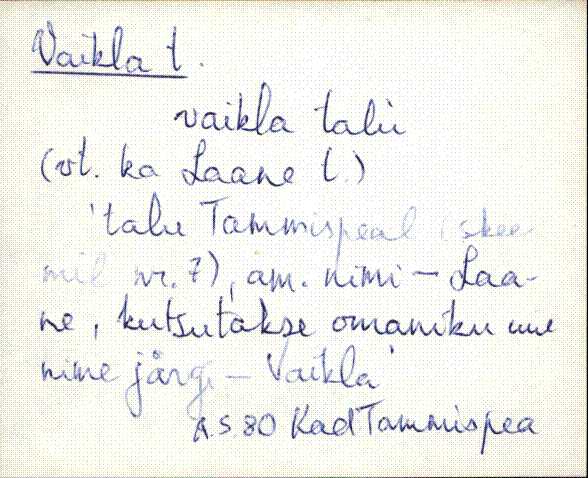 Vaikla t.
vaikla talu
(vt. ka Laane t.)
'talu Tammispeal (skee-
mil nr. 7), am. nimi – Laa-
ne, kutsutakse omaniku uue
nime järgi – Vaikla'
A.S. 80 Kad Tammispea